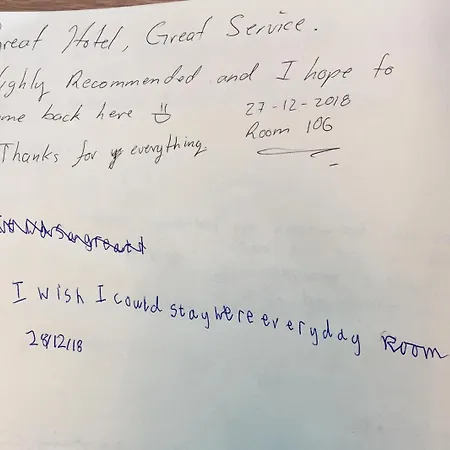 reat Hotel, Great Service.
ighly Recommended and I hope to
me back here
27-12-2018
Room 106
Thanks for everything.
I wish I could stay here everyday Room
28/12/18